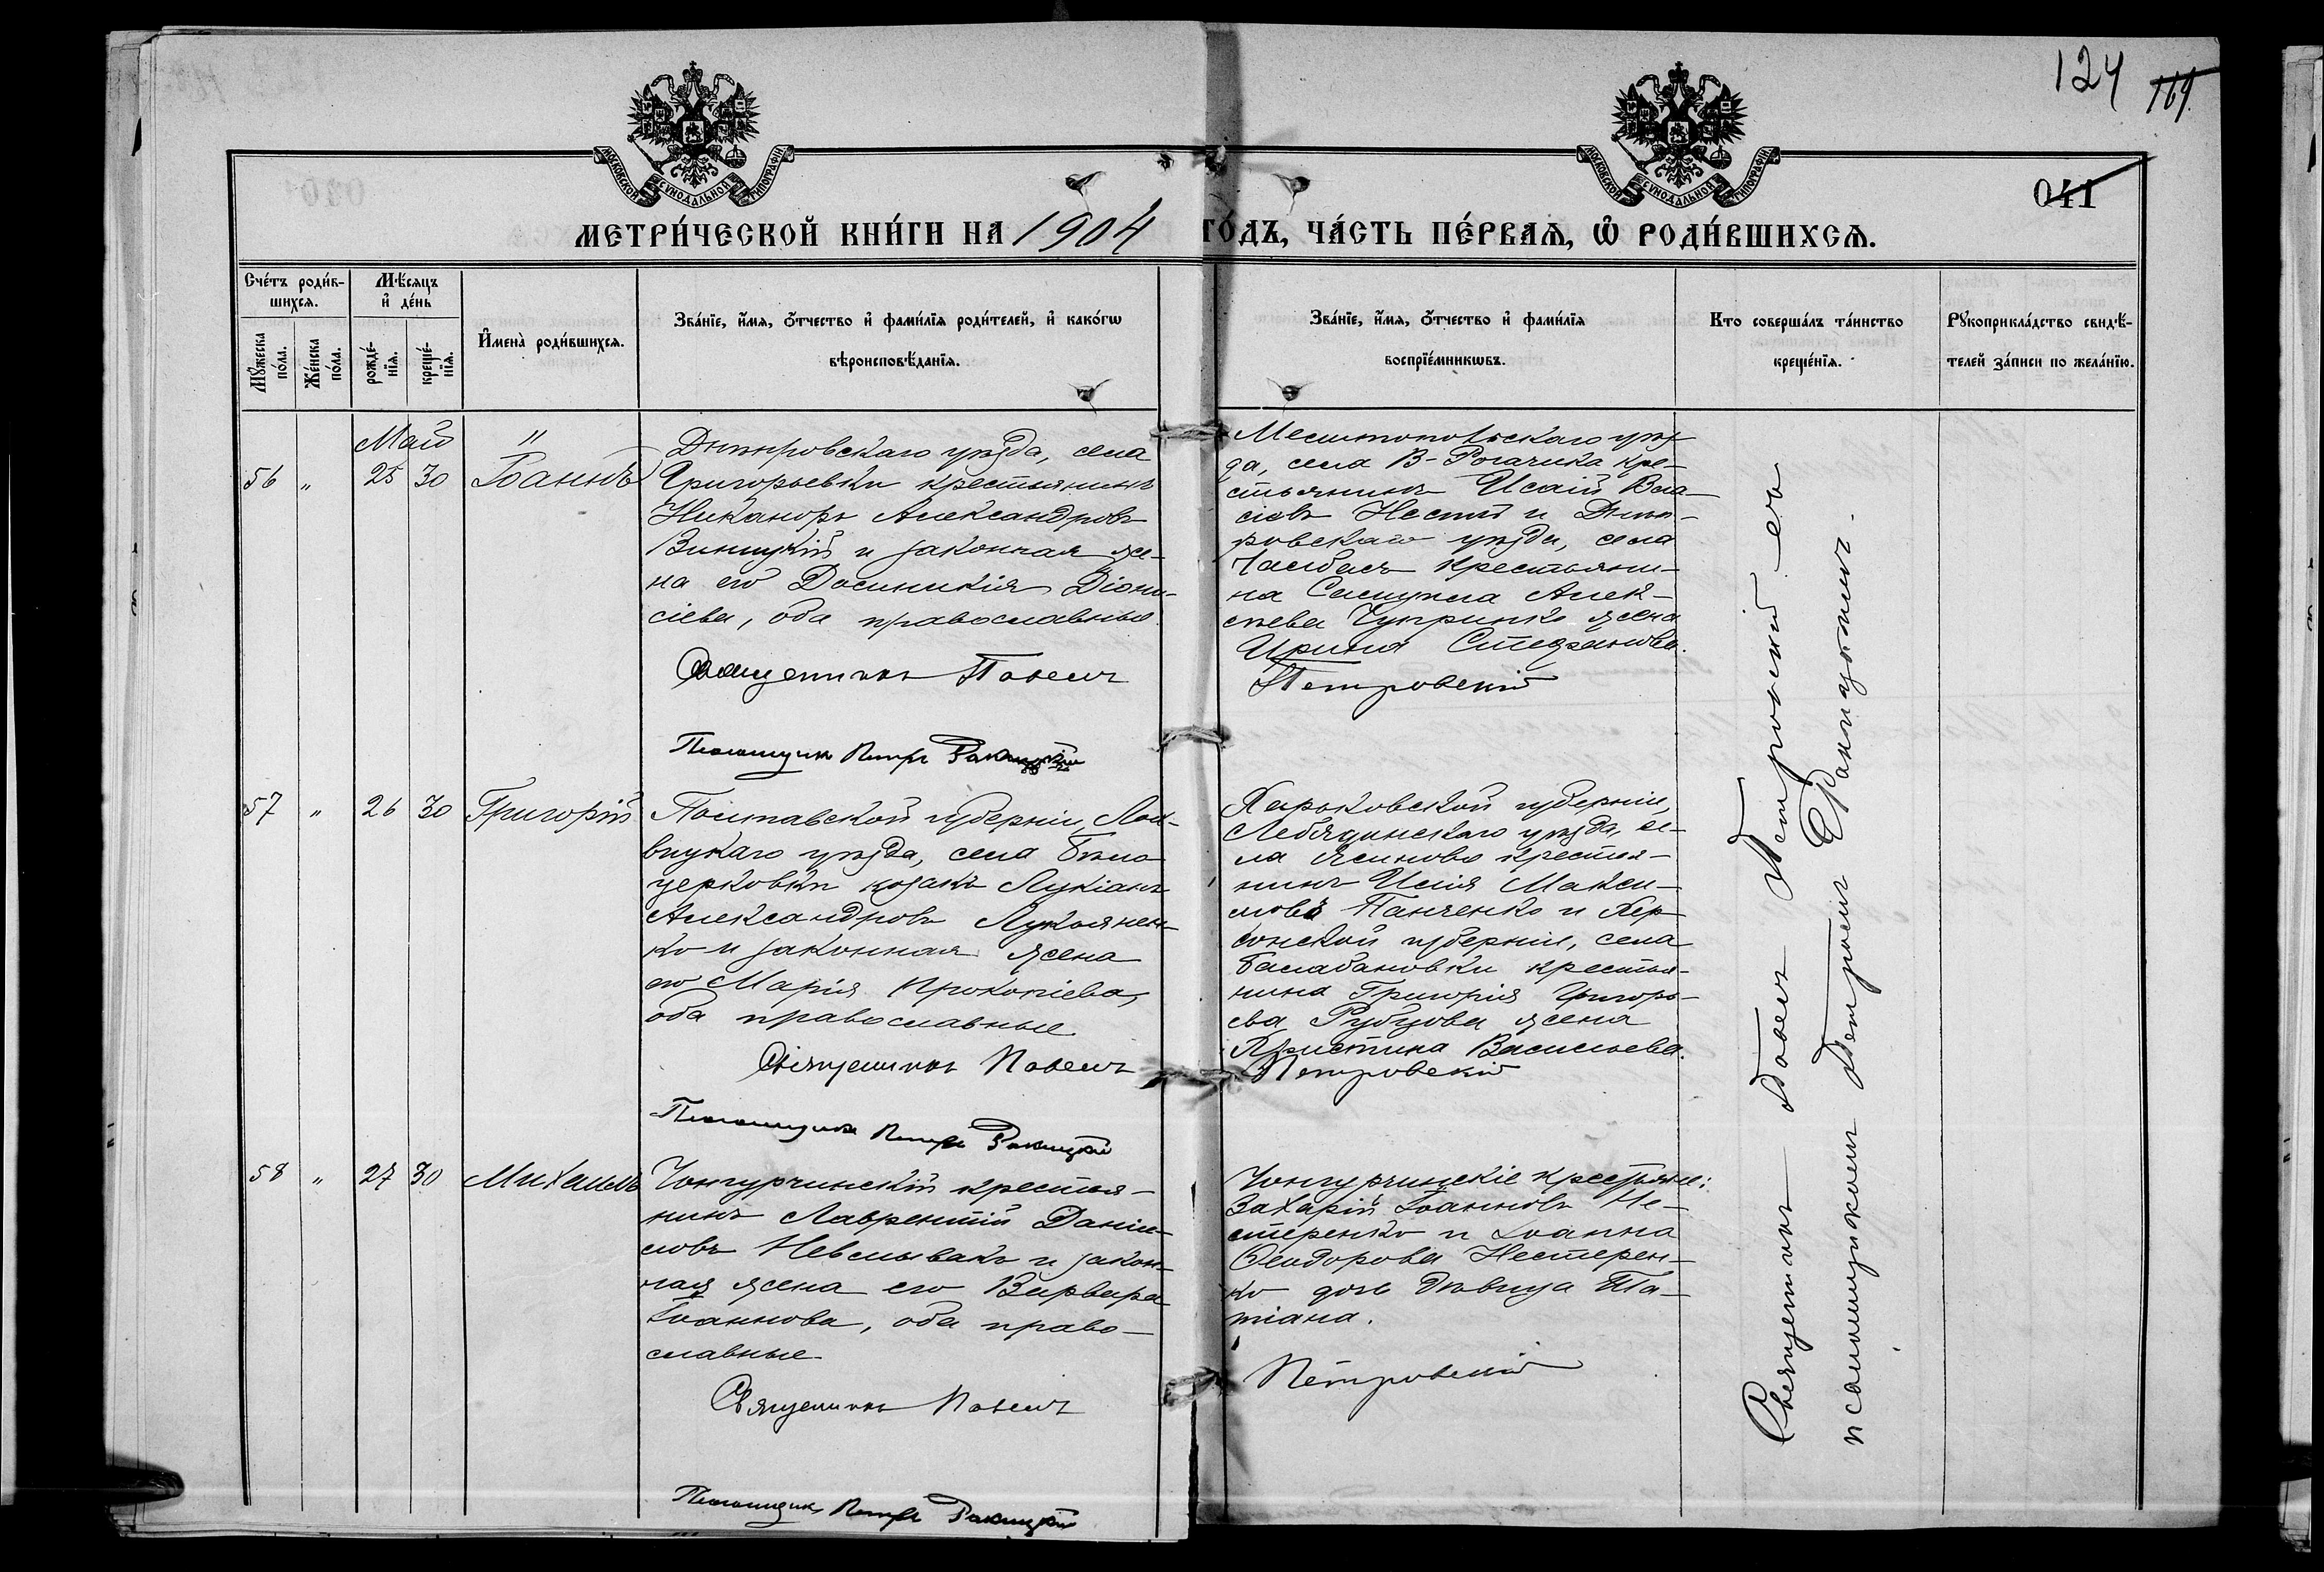 124 169.
041
МОСКОВСКОЙ СѴНОДАЛЬНОЙ ТИПОГРАФІИ
МОСКОВСКОЙ СѴНОДАЛЬНОЙ ТИПОГРАФІИ
МЕТРИ́ЧЕСКОЙ КНИ́ГИ НА 1904 ГО́ДЪ, ЧА́СТЬ ПЕ́РВАѦ, Ѽ РОДИ́ВШИХСѦ.
Сче́тъ роди́в-
шихсѧ.
Мꙋ́жеска
по́ла.
Же́нска
по́ла.
Мѣ́сѧцъ
и҆ де́нь
рожде́-
нїѧ.
креще́-
нїѧ.
И҆мена̀ роди́вшихсѧ.
Зва́нїе, и҆́мѧ, ѻ҆́тчество и҆ фами́лїѧ роди́телей, и҆ како́гѡ
вѣроисповѣ́данїѧ.
Зва́нїе, и҆́мѧ, ѻ҆́тчество и҆ фами́лїѧ
воспрїе́мникѡвъ.
Кто соверша́лъ та́инство
креще́нїѧ.
Рꙋкоприкла́дство свидѣ́-
телей за́писи по жела́нїю.
Май "
56 " 25 30 Іоаннъ
Днѣпровскаго уѣзда, села
Григорьевки крестьянинъ
Никаноръ Александровъ
Виницкій и законная же-
на его Доминикія Діони-
сіева, оба православные.
Священникъ Павелъ
Псаломщикъ Петръ Ракицкій
Мелитопольскаго уѣз-
да, села В-Рогачика кре-
стьянинъ Исаій Вла-
сіевъ Нестій и Днѣп-
ровскаго уѣзда, села
Чалбасъ крестьяни-
на Самуила Алек-
сѣева Чуприно жена
Ирина Стефанова.
Петровскій
57 " 26 30 Григорій
Полтавской губерніи, Лох-
вицкаго уѣзда, села Бѣло-
церковки козакъ Лукіанъ
Александровъ Лукьянен-
ко и законная жена
его Марія Прокопіева,
оба православные
Священникъ Павелъ
Псаломщикъ Петръ Ракицкій
Харьковской губерніи,
Лебединскаго уѣзда, се-
ла Ясиново крестья-
нинъ Илія Макси-
мовъ Панченко и Хер-
сонской губерніи, села
Балабановки крестья-
нина Григорія Григорь-
ева Рубцова жена
Христина Васильева.
Петровскій
58 " 27 30 Михаилъ
Чонгурчинскій крестья-
нинъ Лаврентій Даніи-
ловъ Невмывакъ и закон-
ная жена его Варвара
Іоаннова, оба право-
славные
Священникъ Павелъ
Псаломщикъ Петръ Ракицкій
Чонгурчинскіе крестьяне:
Захарій Іоанновъ Не-
стеренко и Іоанна
Ѳеодорова Нестерен-
ко дочь дѣвица Та-
тіана.
Петровскій
Священникъ Павелъ Петровскій съ
псаломщикомъ Петромъ